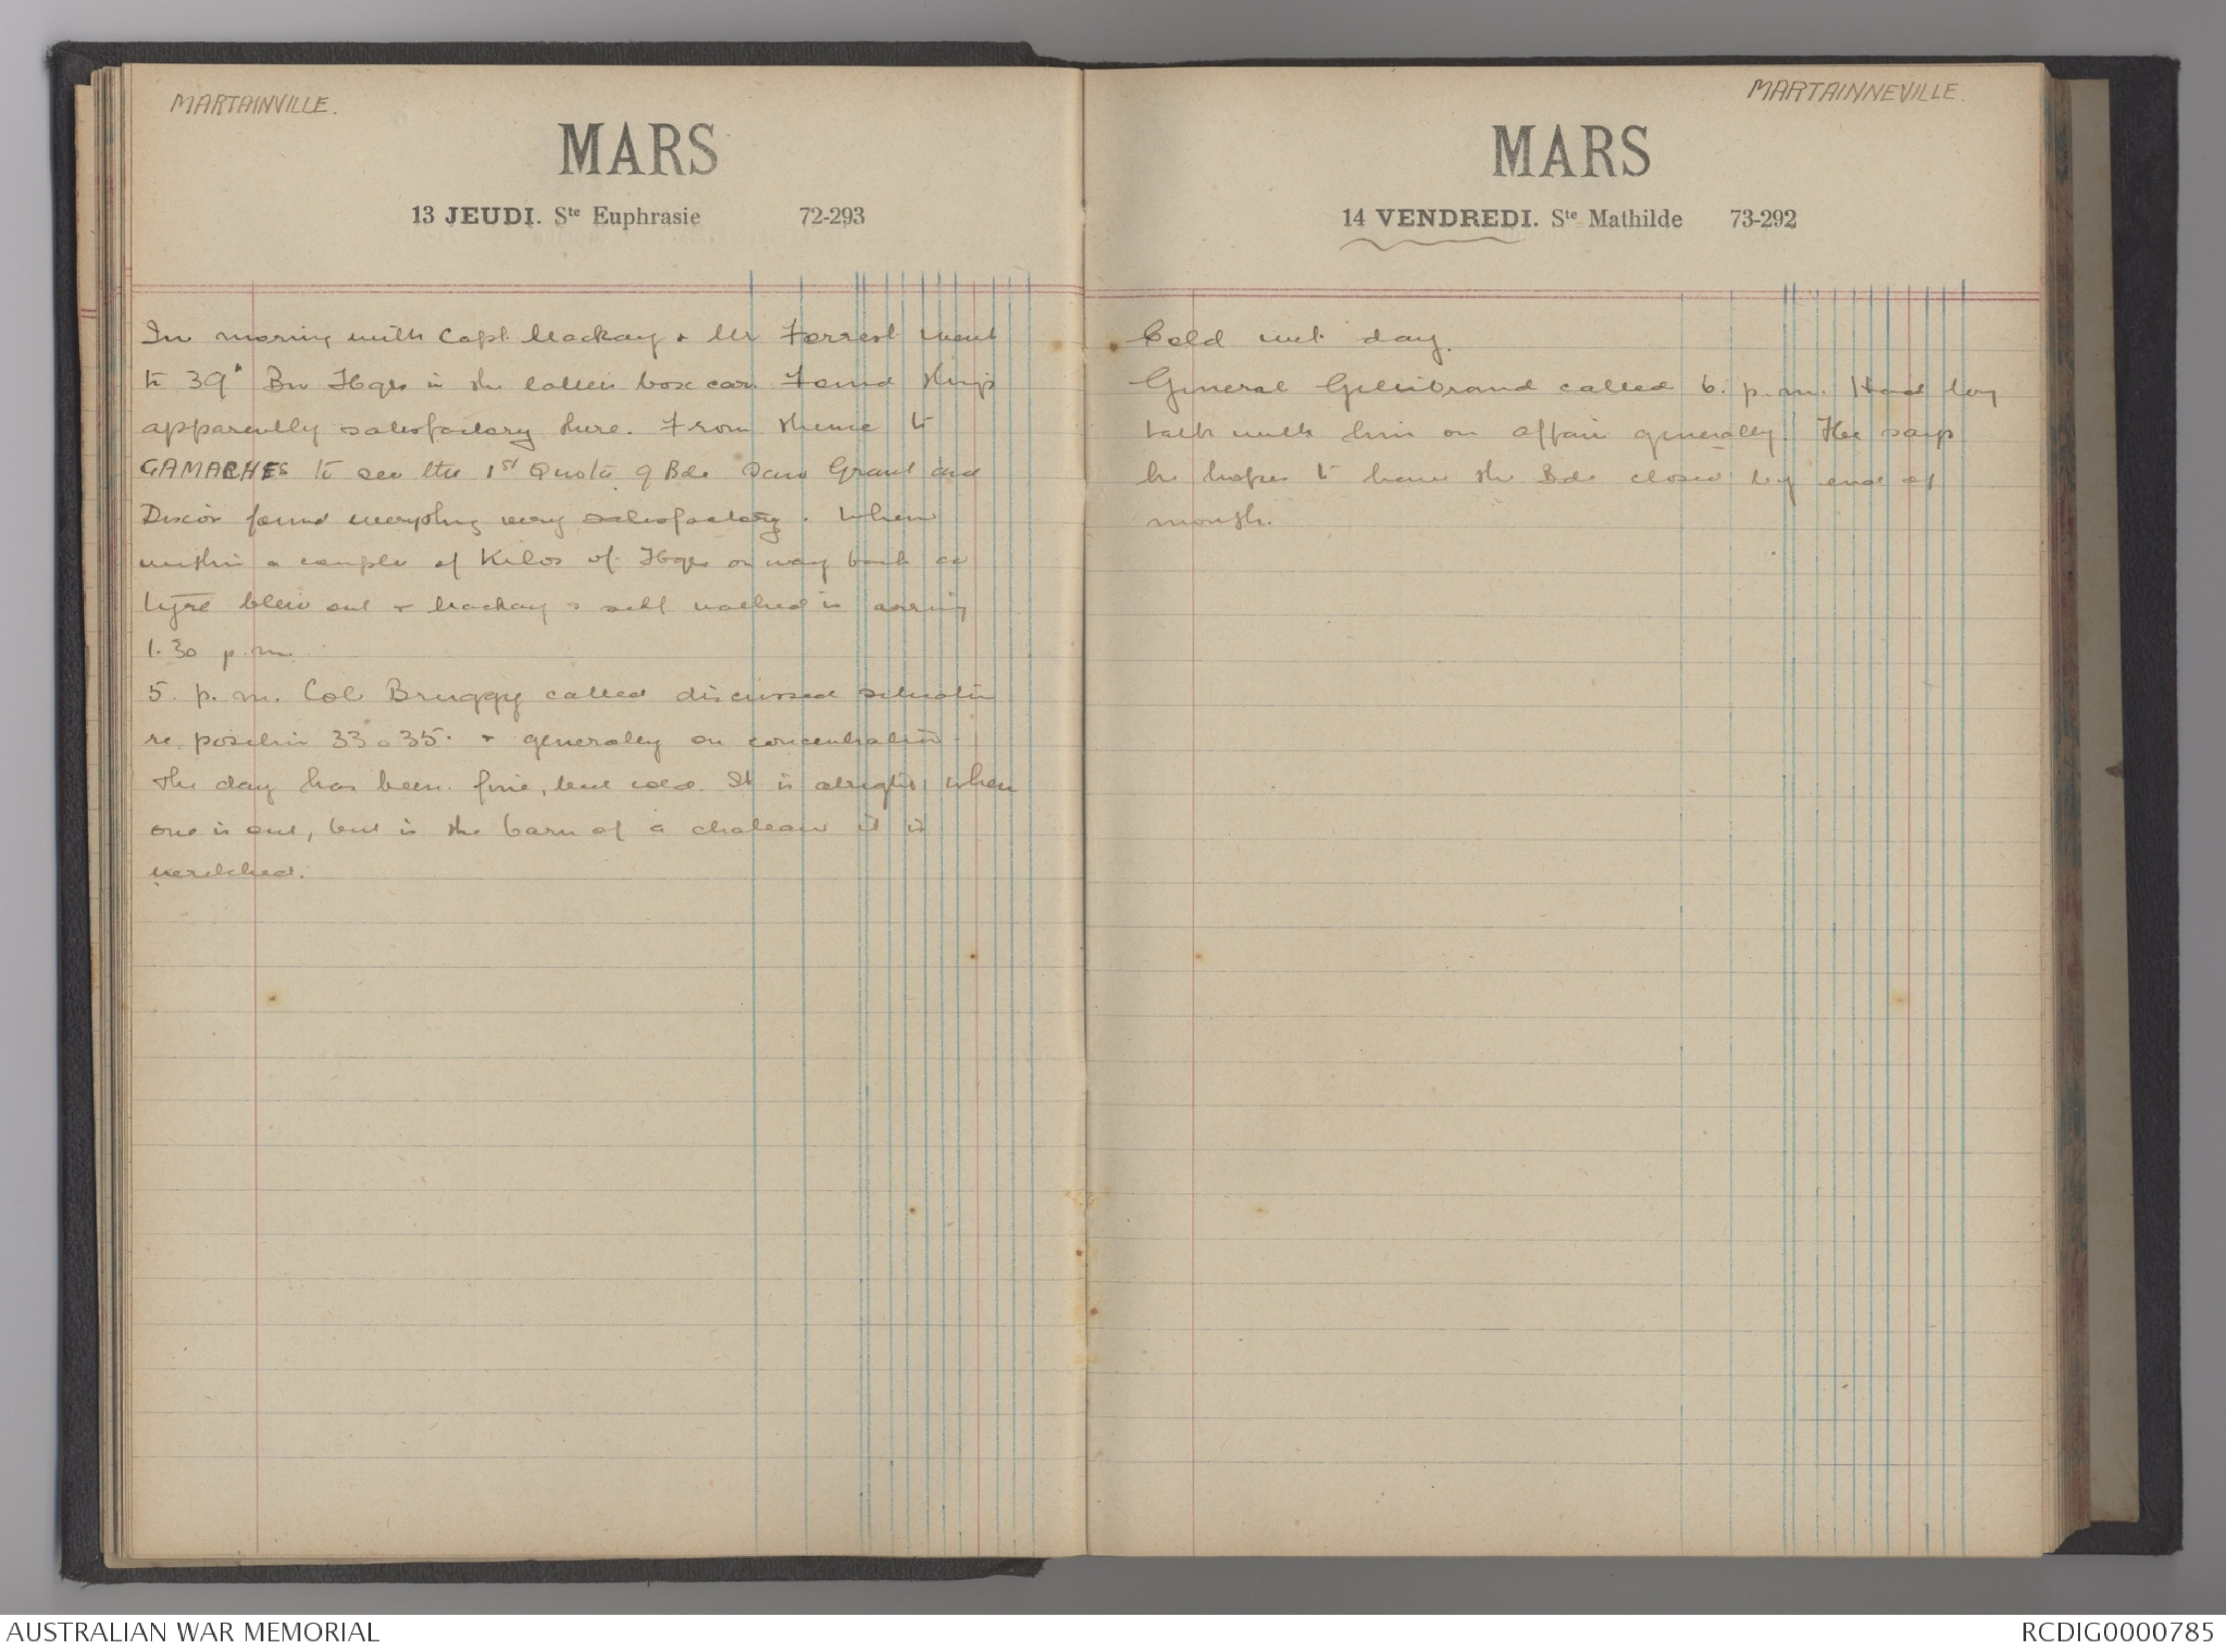 MARTAINVILLE.
MARS
13 JEUDI. Ste Euphrasie 72-293
In morning with Capt. Mackay & Mr Forrest went
to 39th Bn Hqrs in the box car. Found things
apparently satisfactory there. From thence to
GAMACHES to see the 1st Quota 9 Bde Saw Grant and
Dixon found everything very satisfactory. When
within a couple of Kilos of Hqrs on way back a
tyre blew out & Mackay & self walked in arriving
1.30 p.m.
5. p.m. Col Bruggy called discussed situation
re position 33 & 35. & generally on concentration.
The day has been fine, but cold. It is alright when
one is out, but in the barn of a chateau it is
wretched.
MARTAINNEVILLE.
MARS
14 VENDREDI. Ste Mathilde 73-292
Cold wet day.
General Gellibrand called 6. p.m. Had long
talk with him on affairs generally. He says
he hopes to have the Bde closed by end of
month.
AUSTRALIAN WAR MEMORIAL
RCDIG0000785